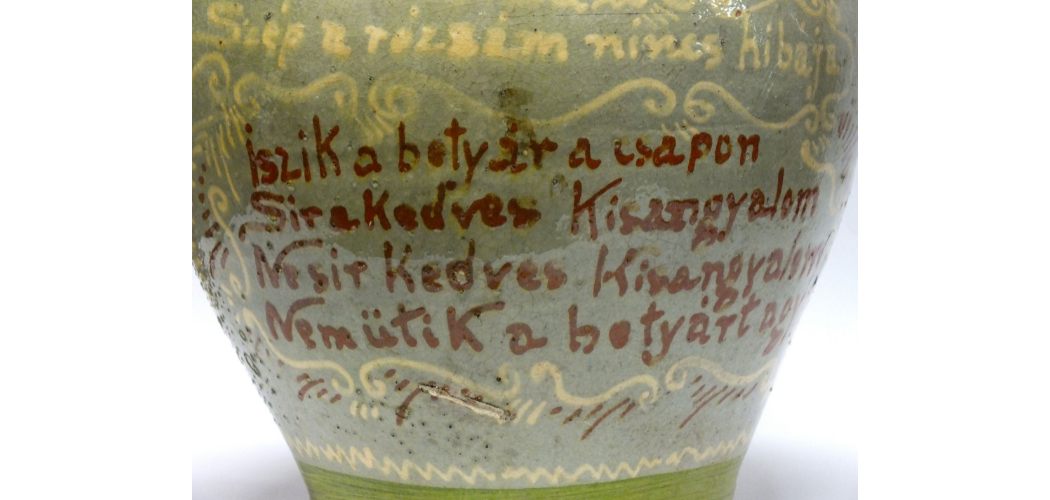 Szép a rózsám nincs hibája
Iszik a betyár a csapon
Sir a Kedves Kisangyalom
Ne sir Kedves Kisangyalom
Nem ütik a betyárt agy